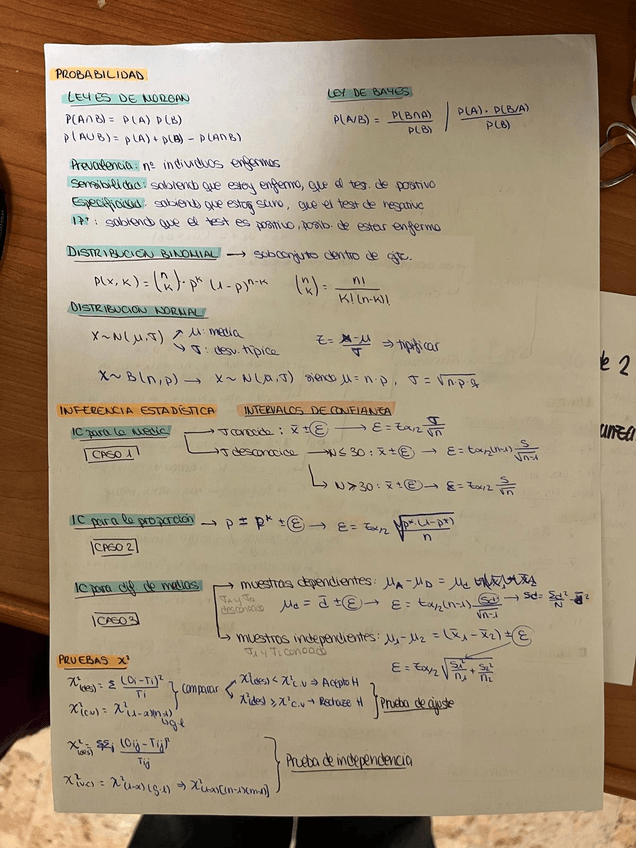 PROBABILIDAD
LEYES DE MORGAN
P(A∩B) = P(A) P(B)
P(A∪B) = P(A) + P(B) - P(A∩B)
LEY DE BAYES
P(A/B) = P(B∩A) / P(B) | P(A) · P(B/A) / P(B)
Prevalencia: nº individuos enfermos
Sensibilidad: sabiendo que estoy enfermo, que el test. de positivo
Especificidad: sabiendo que estoy sano, que el test de negativo
: sabiendo que el test es positivo, posib. de estar enfermo
DISTRIBUCIÓN BINOMIAL → subconjunto dentro de
P(x, k) = (n k) · p^k (1-p)^n-k (n k) = n! / k!(n-k)!
DISTRIBUCIÓN NORMAL
X ~ N(μ, σ) ↗ μ: media
↘ σ: desv. típica
Z = x - μ / σ ⇒ tipificar
X ~ B(n, p) → X ~ N(μ, σ) siendo μ = n · p, σ = √n·p·q
INFERENCIA ESTADÍSTICA INTERVALOS DE CONFIANZA
IC para la media
CASO 1
σ conocida: x̄ ± ε → ε = zα/2 σ/√n
σ desconocida → N ≤ 30: x̄ ± ε → ε = tα/2(n-1) S/√n-1
N > 30: x̄ ± ε → ε = zα/2 S/√n
IC para la proporción → p ± p* ± ε → ε = zα/2 √p*·(1-p*)/n
CASO 2
IC para dif de medias
CASO 3
muestras dependientes: μA - μD = μd
σ1 y σ2 desconocida
μd = d̄ ± ε → ε = tα/2(n-1) Sd/√n-1 → Sd = Σd²/N - d̄²
muestras independientes: μ1 - μ2 = (x̄1 - x̄2) ± ε
σ1 y σ2 conocida
ε = zα/2 √S1²/n1 + S2²/n2
PRUEBAS X²
X²(des) = Σ (Oi - Ti)² / Ti
X²(c.v) = X²(1-α)(n-1)
g.l
comparar
X²(des) < X² c.v ⇒ Acepto H
X²(des) ≥ X² c.v ⇒ Rechazo H
Prueba de ajuste
X²(des) = ΣΣj (Oij - Tij)² / Tij
X²(v.c) = X²(1-α)(g.l) ⇒ X²(1-α)[(n-1)(m-1)]
Prueba de independencia
de 2
anza